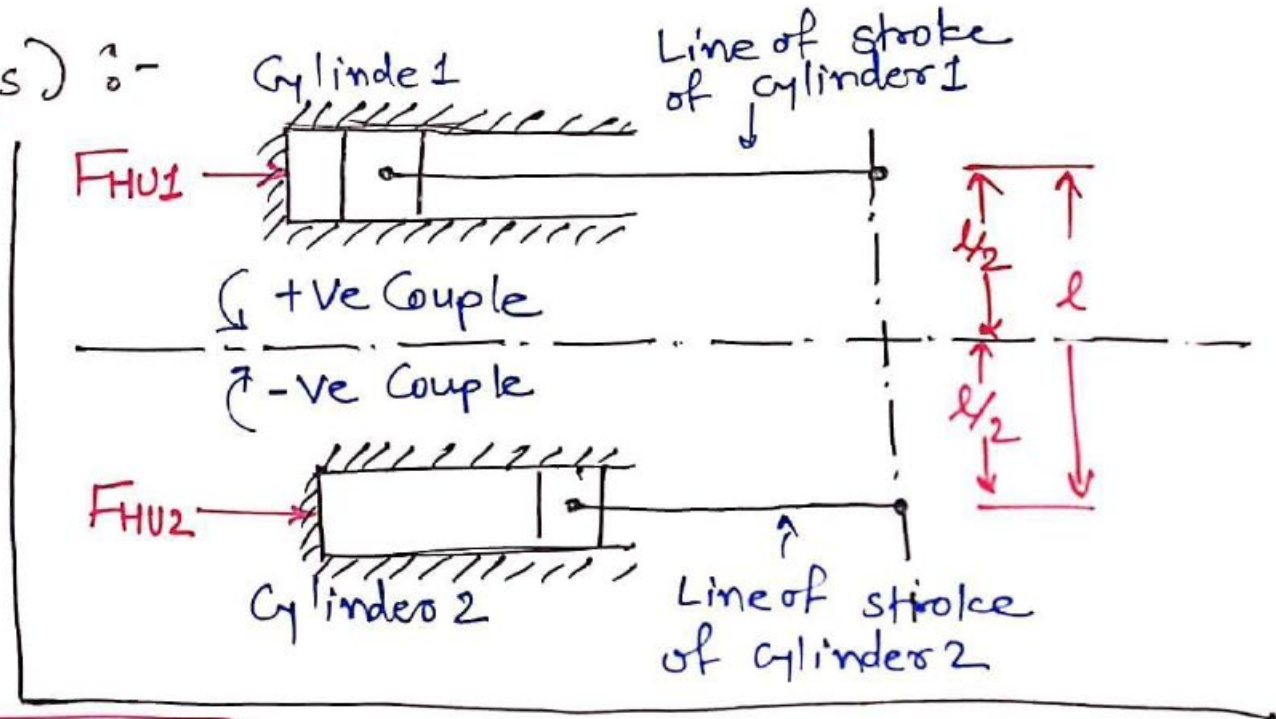 s) :-
Cylinde 1
Line of stroke
of cylinder 1
FHU1
l/2
l
+ve Couple
-ve Couple
l/2
FHU2
Cylinder 2
Line of stroke
of cylinder 2